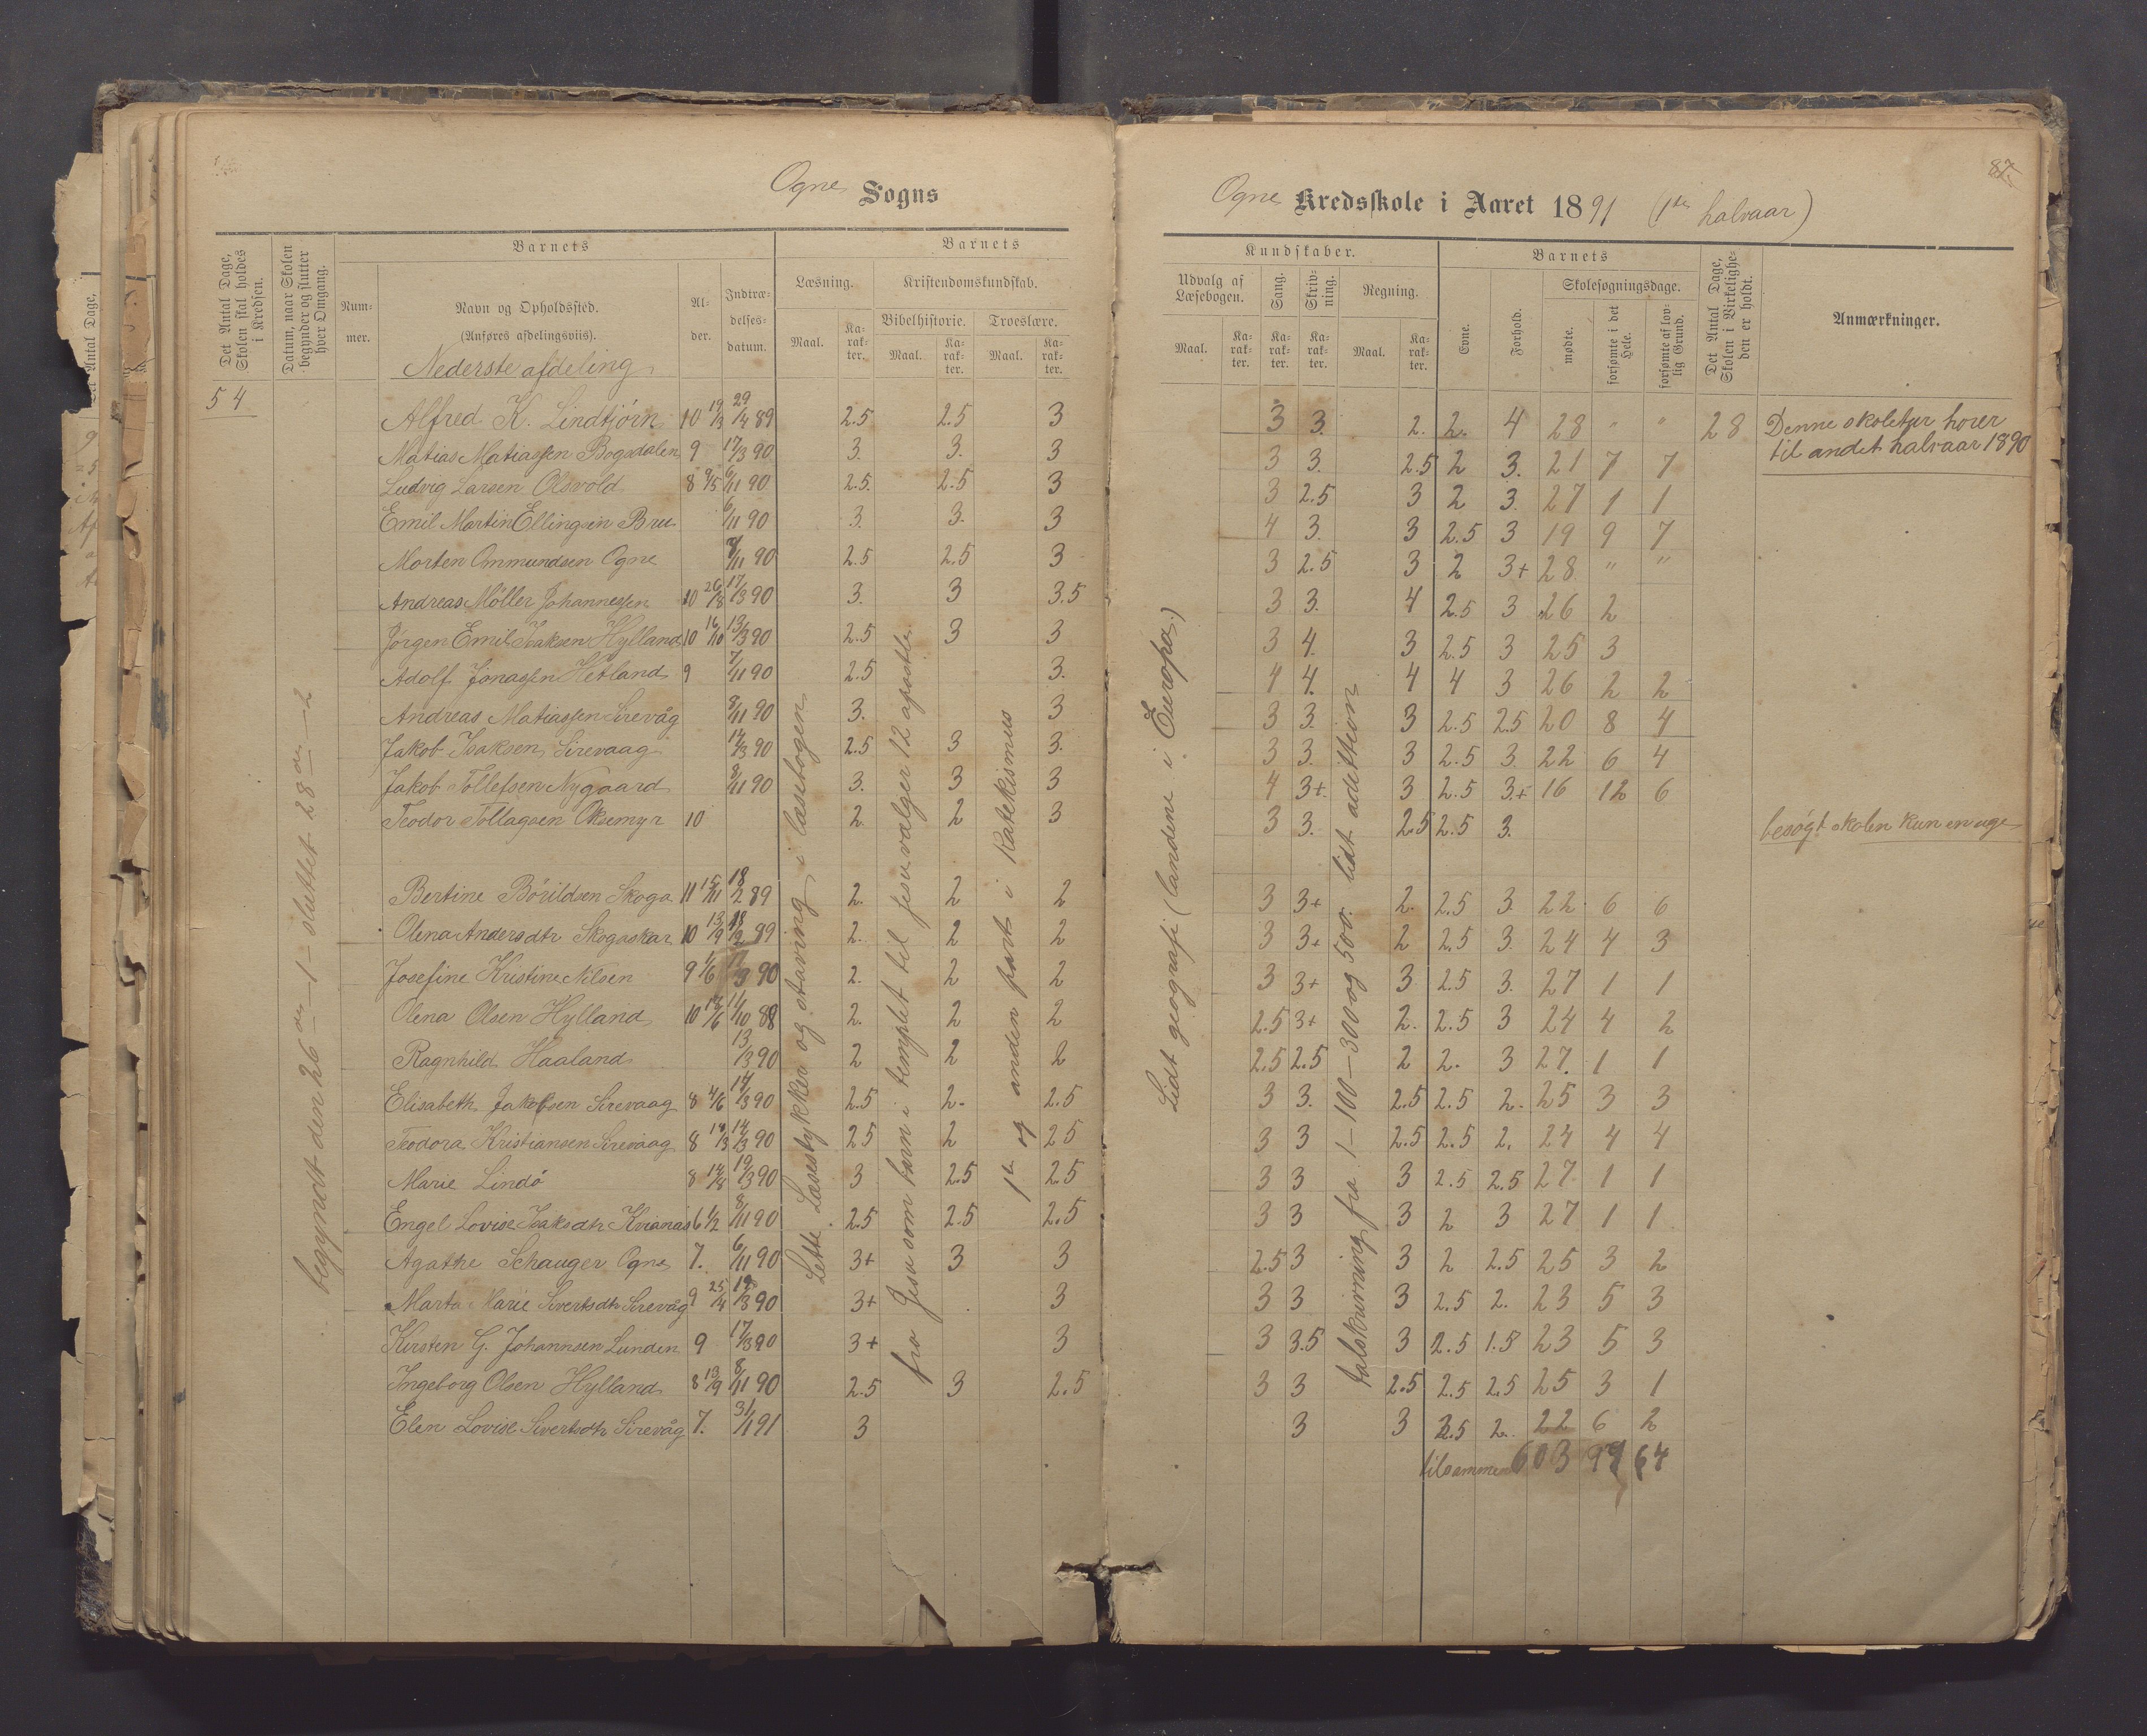 Ogne Sogns
Det Antal Dage, Skolen skal holdes i Kredsen.
Datum, naar Skolen begynder og slutter hver Omgang.
Barnets
Nummer.
Navn og Opholdssted.
(Anføres afdelingsviis).
Alder.
Indtrædelsesdatum.
Barnets
Læsning.
Kristendomskundskab.
Bibelhistorie.
Troeslære.
Maal.
Karakter.
Maal.
Karakter.
Maal.
Karakter.
Nederste afdeling
54
begyndt den 26 de — 1 — sluttet 28 de — 2
Alfred K. Lindtjörn 10 19/3 29/4 89 2.5 2.5 3
Matias Matiassen Bogsdalen 9 17/3 90 3. 3. 3
Ludvig Larsen Olsvold 8 9/5 6/11 90 2.5. 2.5 3
Emil Martin Ellingsen Bru 6/11 90 3. 3. 3
Morten Omundsen Ogne /11 90 2.5 2.5 3
Andreas Möller Johannessen 10 26/8 17/3 90 3. 3 3.5
Jörgen Emil Isaksen Hylland 10 16/10 13/3 90 2.5 3 3
Adolf Jonassen Hetland 9 7/11 90 2.5 3.
Andreas Matiassen Sirevåg 8/11 90 3. 3
Jakob Isaksen Sirevaag 14/3 90 2.5 3 3.
Jakob Tollefsen Nygaard 8/11 90 3. 3 3
Teodor Tollagsen Oksemyr 10 2. 2 3
Bertine Börildsen Skoga 11 15/11 18/2 89 2. 2 2
Olena Andersdtr Skogaskar 10 13/9 18/2 89 2. 2 2
Josefine Kristine Nilsen 9 1/6 17/3 90 2. 2 2
Olena Olsen Hylland 10 12/6 11/10 88 2. 2 2
Ragnhild Haaland 13/3 90 2 2 2
Elisabeth Jakobsen Sirevaag 8 4/6 14/3 90 2.5 2. 2.5
Teodora Kristiansen Sirevaag 8 14/3 90 2.5 2 2.5
Marie Lindö 8 14/8 19/3 90 3 2.5 2.5
Engel Lovise Isaksdtr Kvianas 6 1/2 8/11 90 2.5 2.5 2.5
Agathe Schauger Ogne 7. 6/11 90 3+ 3 3
Marta Marie Sivertsdtr Sirevåg 9 25/4 /3 90 3+ 3
Kirsten G. Johannsen Lunden 9 17/3 90 3+ 3
Ingeborg Olsen Hylland 8 13/9 8/11 90 2.5 3 2.5
Elen Lovise Sivertsdtr Sirevåg 7. 31/1 91 3
Lette Læsestykker og stavning i læsebogen
fra Jesu som barn i templet til jesu vælger 12 apostle
1ste og anden part i Katekismus
87
Ogne Kredsskole i Aaret 1891 (1ste halvaar)
Kundskaber.
Udvalg af Læsebogen.
Sang.
Skrivning.
Regning.
Maal.
Karakter.
Karakter.
Karakter.
Maal.
Karakter.
Barnets
Evne.
Forhold.
Skolesøgningsdage.
mødte.
forsømte i det Hele.
forsømte af lovlig Grund.
Det Antal Dage, Skolen i Virkeligheden er holdt.
Anmærkninger.
Lidt geografi (landene i Europa.)
talskrivning fra 1—100—300 og 500. lidt adittion
3 3. 2. 2. 4 28 " " 28 Denne skoletur hører
til andet halvaar 1890
3 3. 2.5 2 3. 21 7 7
3 2.5 3 2 3. 27 1 1
4 3. 3 2.5 3 19 9 7
3 2.5 3 2 3+ 28 " "
3 3. 4 2.5 3 26 2
3 4. 3 2.5 3 25 3
4 4. 4 4 3 26 2 2
3 3. 3 2.5 2.5 20 8 4
3 3. 3 2.5 3. 22 6 4
4 3+ 3 2.5 3.+ 16 12 6
3 3. 2.5 2.5 3. besøgt skolen kun en uge
3 3+ 2. 2.5 3. 22 6 6
3 3+ 2 2.5 3. 24 4 3
3 3+ 3 2.5 3. 27 1 1
2.5 3+ 2. 2.5 3 24 4 2
2.5 2.5 2 2. 3 27. 1 1
3 3. 2.5 2.5 2. 25 3 3
3 3 2.5 2.5 2. 24 4 4
3 3 3 2.5 2.5 27 1 1
3 3 3 2 3 27 1 1
2.5 3 3 2 2.5 25 3 2
3 3 3 2.5 2. 23 5 3
3 3.5 3 2.5 1.5 23 5 3
3 3 2.5 2.5 2.5 25 3 1
3 3 2.5 2. 22 6 2
tilsammen 603 97 64